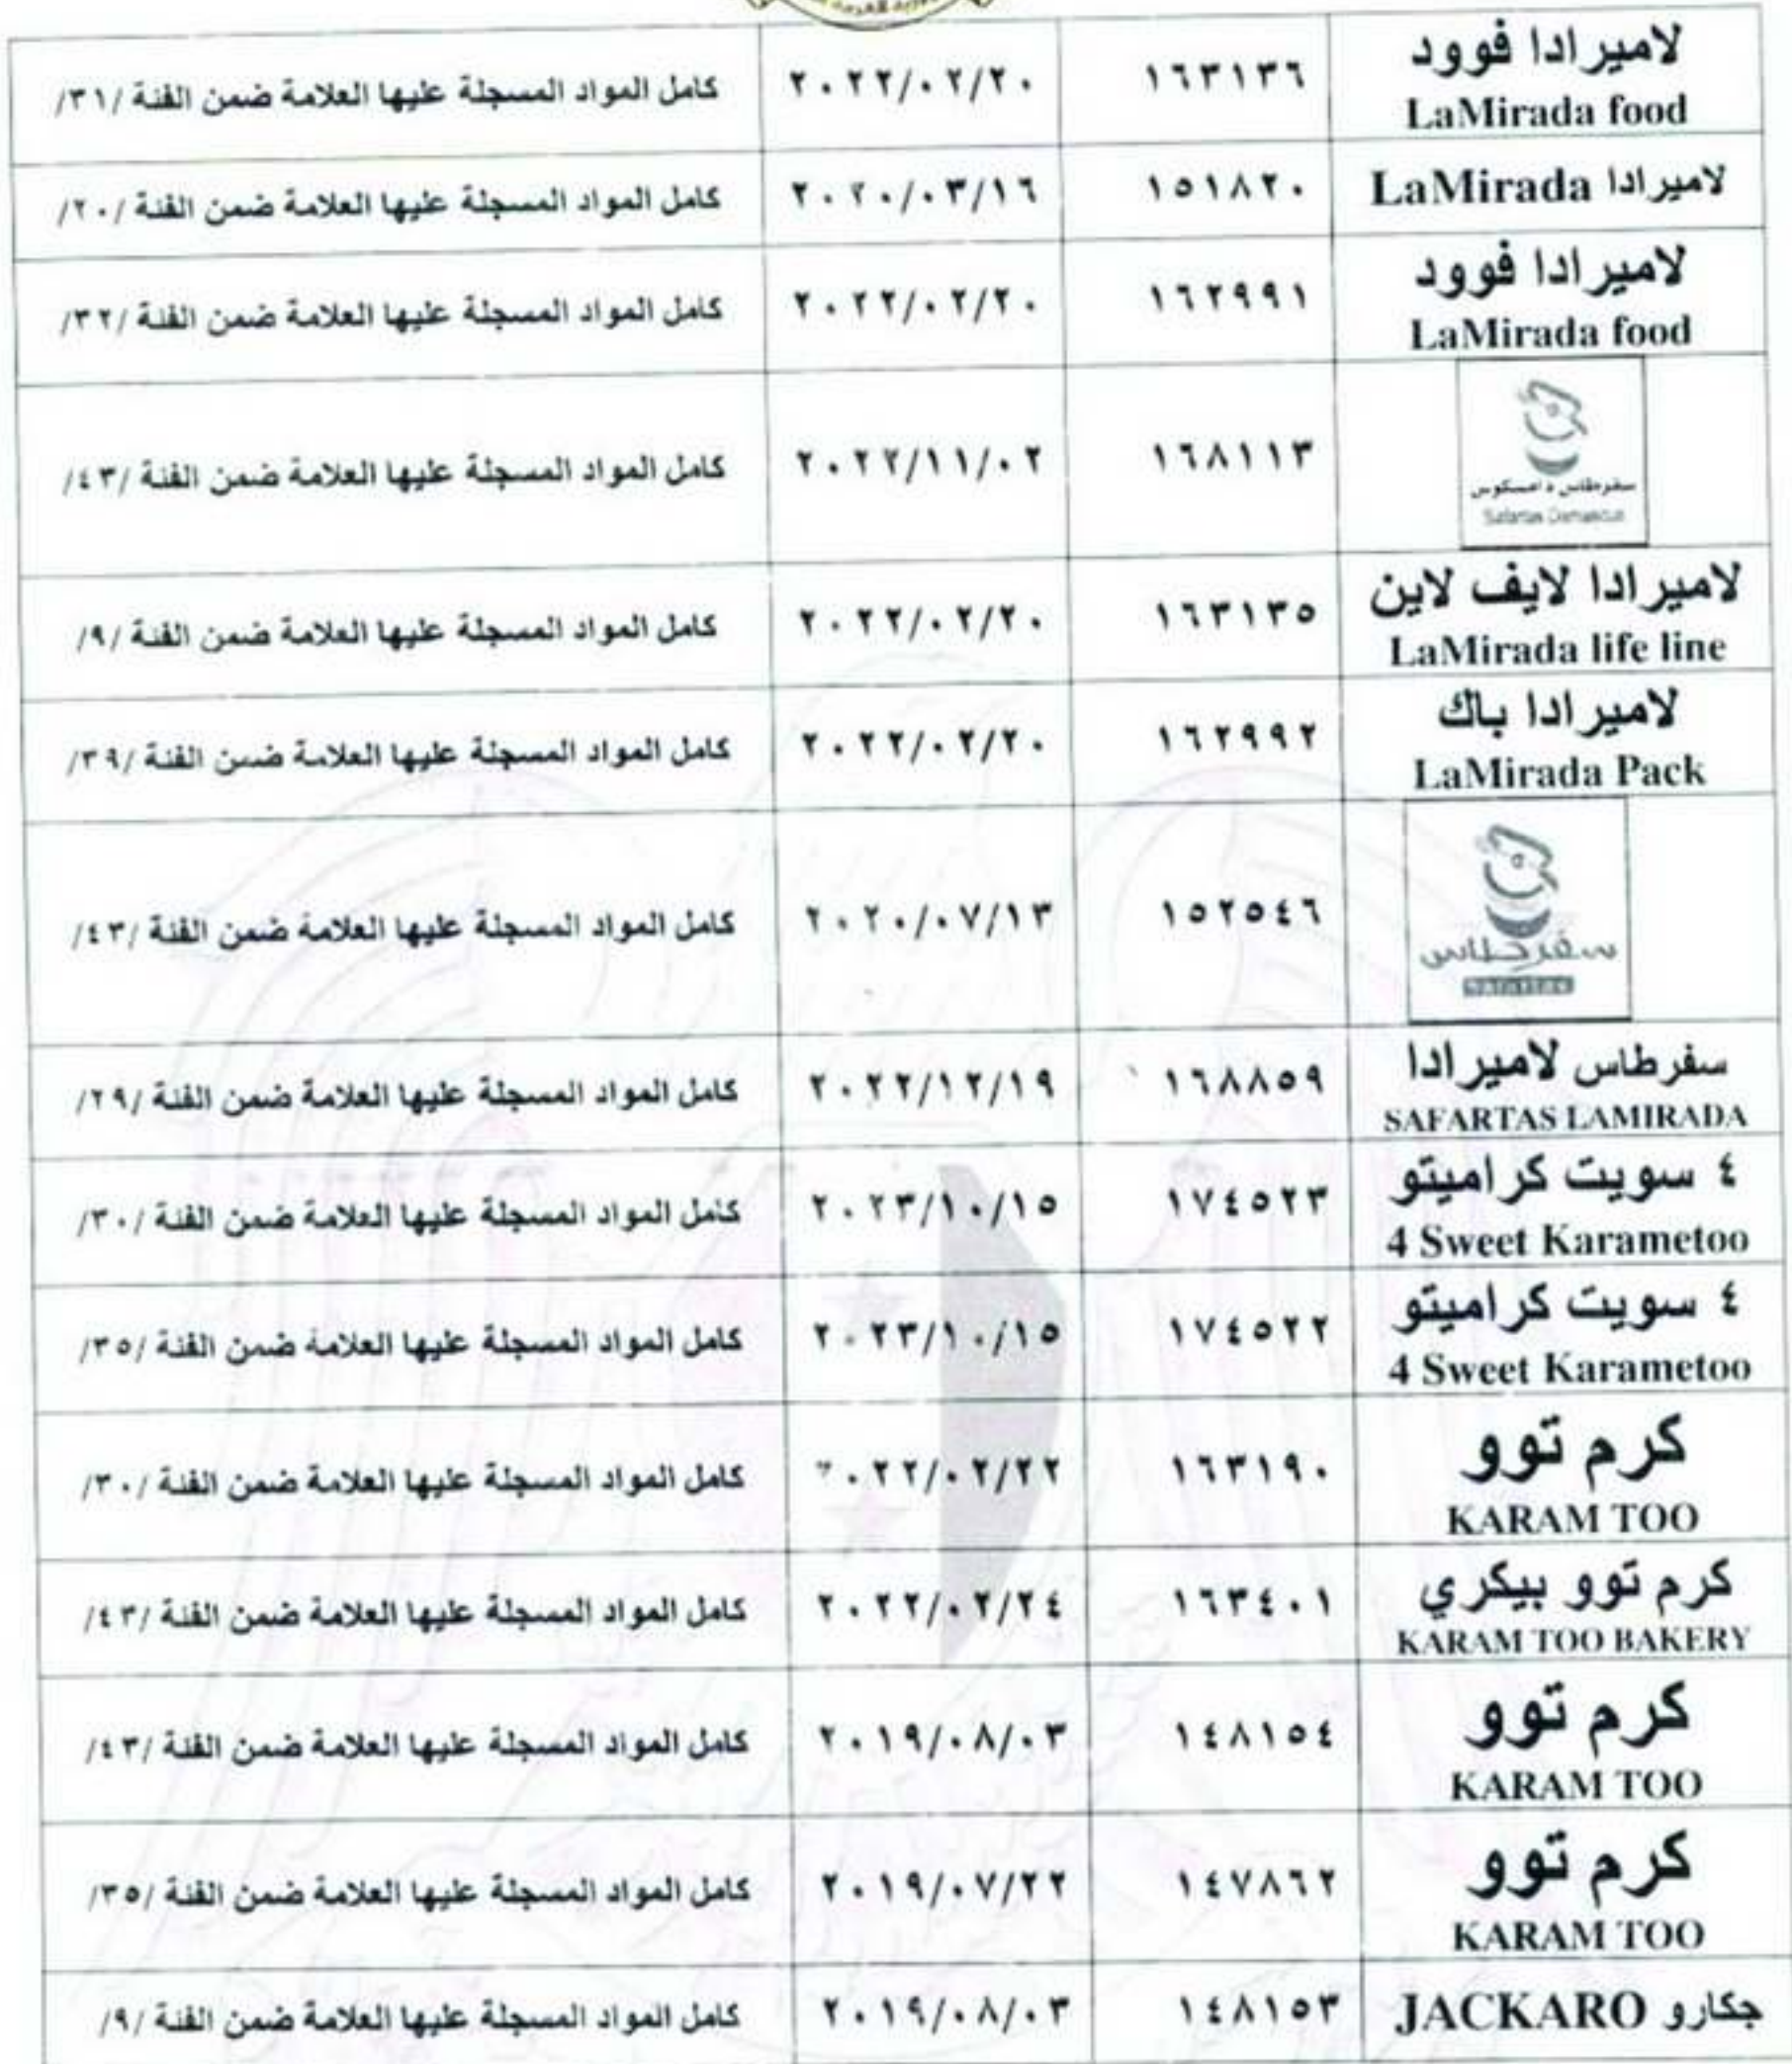 لاميرادا فوود
LaMirada food
١٦٣١٣٦
٢٠٢٢/٠٢/٢٠
كامل المواد المسجلة عليها العلامة ضمن الفئة /٣١/
لاميرادا LaMirada
١٥١٨٢٠
٢٠٢٠/٠٣/١٦
كامل المواد المسجلة عليها العلامة ضمن الفئة /٢٠/
لاميرادا فوود
LaMirada food
١٦٢٩٩١
٢٠٢٢/٠٢/٢٠
كامل المواد المسجلة عليها العلامة ضمن الفئة /٣٢/
سفرطاس دامسكوس
Safartas Damascus
١٦٨١١٣
٢٠٢٢/١١/٠٢
كامل المواد المسجلة عليها العلامة ضمن الفئة /٤٣/
لاميرادا لايف لاين
LaMirada life line
١٦٣١٣٥
٢٠٢٢/٠٢/٢٠
كامل المواد المسجلة عليها العلامة ضمن الفئة /٩/
لاميرادا باك
LaMirada Pack
١٦٢٩٩٢
٢٠٢٢/٠٢/٢٠
كامل المواد المسجلة عليها العلامة ضمن الفئة /٣٩/
سفرطاس
١٥٢٥٤٦
٢٠٢٠/٠٧/١٣
كامل المواد المسجلة عليها العلامة ضمن الفئة /٤٣/
سفرطاس لاميرادا
SAFARTAS LAMIRADA
١٦٨٨٥٩
٢٠٢٢/١٢/١٩
كامل المواد المسجلة عليها العلامة ضمن الفئة /٢٩/
٤ سويت كراميتو
4 Sweet Karametoo
١٧٤٥٢٣
٢٠٢٣/١٠/١٥
كامل المواد المسجلة عليها العلامة ضمن الفئة /٣٠/
٤ سويت كراميتو
4 Sweet Karametoo
١٧٤٥٢٢
٢٠٢٣/١٠/١٥
كامل المواد المسجلة عليها العلامة ضمن الفئة /٣٥/
كرم توو
KARAM TOO
١٦٣١٩٠
٢٠٢٢/٠٢/٢٢
كامل المواد المسجلة عليها العلامة ضمن الفئة /٣٠/
كرم توو بيكري
KARAM TOO BAKERY
١٦٣٤٠١
٢٠٢٢/٠٢/٢٤
كامل المواد المسجلة عليها العلامة ضمن الفئة /٤٣/
كرم توو
KARAM TOO
١٤٨١٥٤
٢٠١٩/٠٨/٠٣
كامل المواد المسجلة عليها العلامة ضمن الفئة /٤٣/
كرم توو
KARAM TOO
١٤٧٨٦٢
٢٠١٩/٠٧/٢٢
كامل المواد المسجلة عليها العلامة ضمن الفئة /٣٥/
جكارو JACKARO
١٤٨١٥٣
٢٠١٩/٠٨/٠٣
كامل المواد المسجلة عليها العلامة ضمن الفئة /٩/